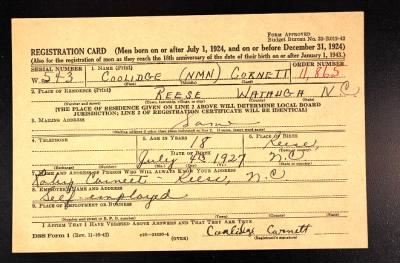 FORM APPROVED
Budget Bureau No. 33-R013-42
REGISTRATION CARD (Men born on or after July 1, 1924, and on or before December 31, 1924)
(Also for the registration of men as they reach the 18th anniversary of the date of their birth on or after January 1, 1943.)
SERIAL NUMBER 1. NAME (Print) ORDER NUMBER
W. 543 COOLIDGE (NMN) CORNETT 11,865
(First) (Middle) (Last)
2. PLACE OF RESIDENCE (Print)
REESE WATAUGA N C
[THE PLACE OF RESIDENCE GIVEN ON LINE 2 ABOVE WILL DETERMINE LOCAL BOARD
JURISDICTION; LINE 2 OF REGISTRATION CERTIFICATE WILL BE IDENTICAL]
3. MAILING ADDRESS
Same
4. TELEPHONE 5. AGE IN YEARS 6. PLACE OF BIRTH
18 Reese,
DATE OF BIRTH
July 4th 1927 N.C.
(Exchange) (Number) (Mo.) (Day) (Yr.)
7. NAME AND ADDRESS OF PERSON WHO WILL ALWAYS KNOW YOUR ADDRESS
Cornett Reese, N.C
8. EMPLOYER'S NAME AND ADDRESS
Self employed
9. PLACE OF EMPLOYMENT OR BUSINESS
(Number and street or R. F. D. number) (Town) (County) (State)
I AFFIRM THAT I HAVE VERIFIED ABOVE ANSWERS AND THAT THEY ARE TRUE.
DSS Form 1 (Rev. 11-16-42) (OVER) Coolidge Cornett
(Registrant's signature)